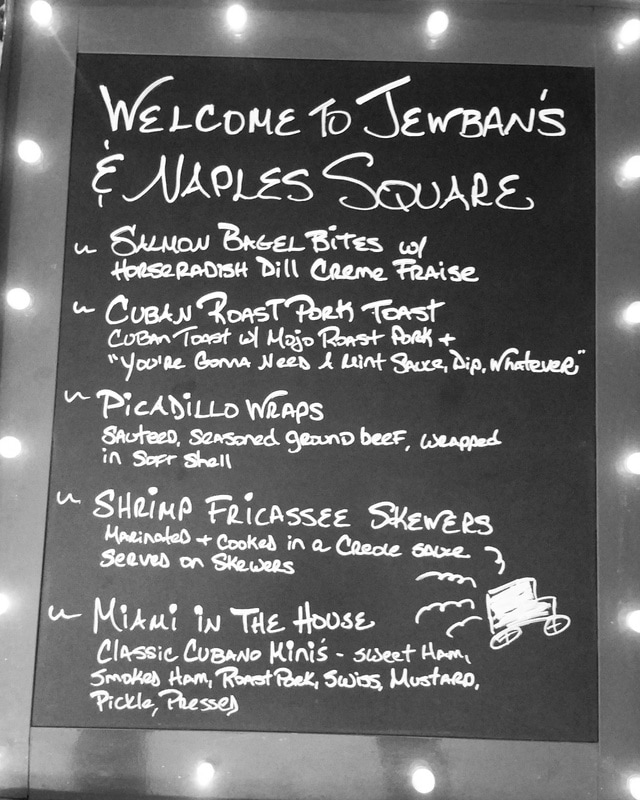 WELCOME TO JEWBAN'S
& NAPLES SQUARE
~ SALMON BAGEL BITES w/
HORSERADISH Dill CREME FRAISE
~ CUBAN ROAST PORK TOAST
CUBAN TOAST w/ MOJO ROAST PORK +
"YOU'RE GONNA NEED A MINT SAUCE, DIP, WHATEVER"
~ PICADILLO WRAPS
SAUTEED, SEASONED GROUND BEEF, WRAPPED
in SOFT Shell
~ SHRIMP FRICASSEE SKEWERS
MARINATED + COOKED in a CREOLE SAUCE
SERVED ON SKEWERS
~ MIAMI IN THE HOUSE
CLASSIC CUBANO MINI'S - SWEET HAM,
SMOKED HAM, ROAST PORK, SWISS, MUSTARD,
PICKLE, PRESSED